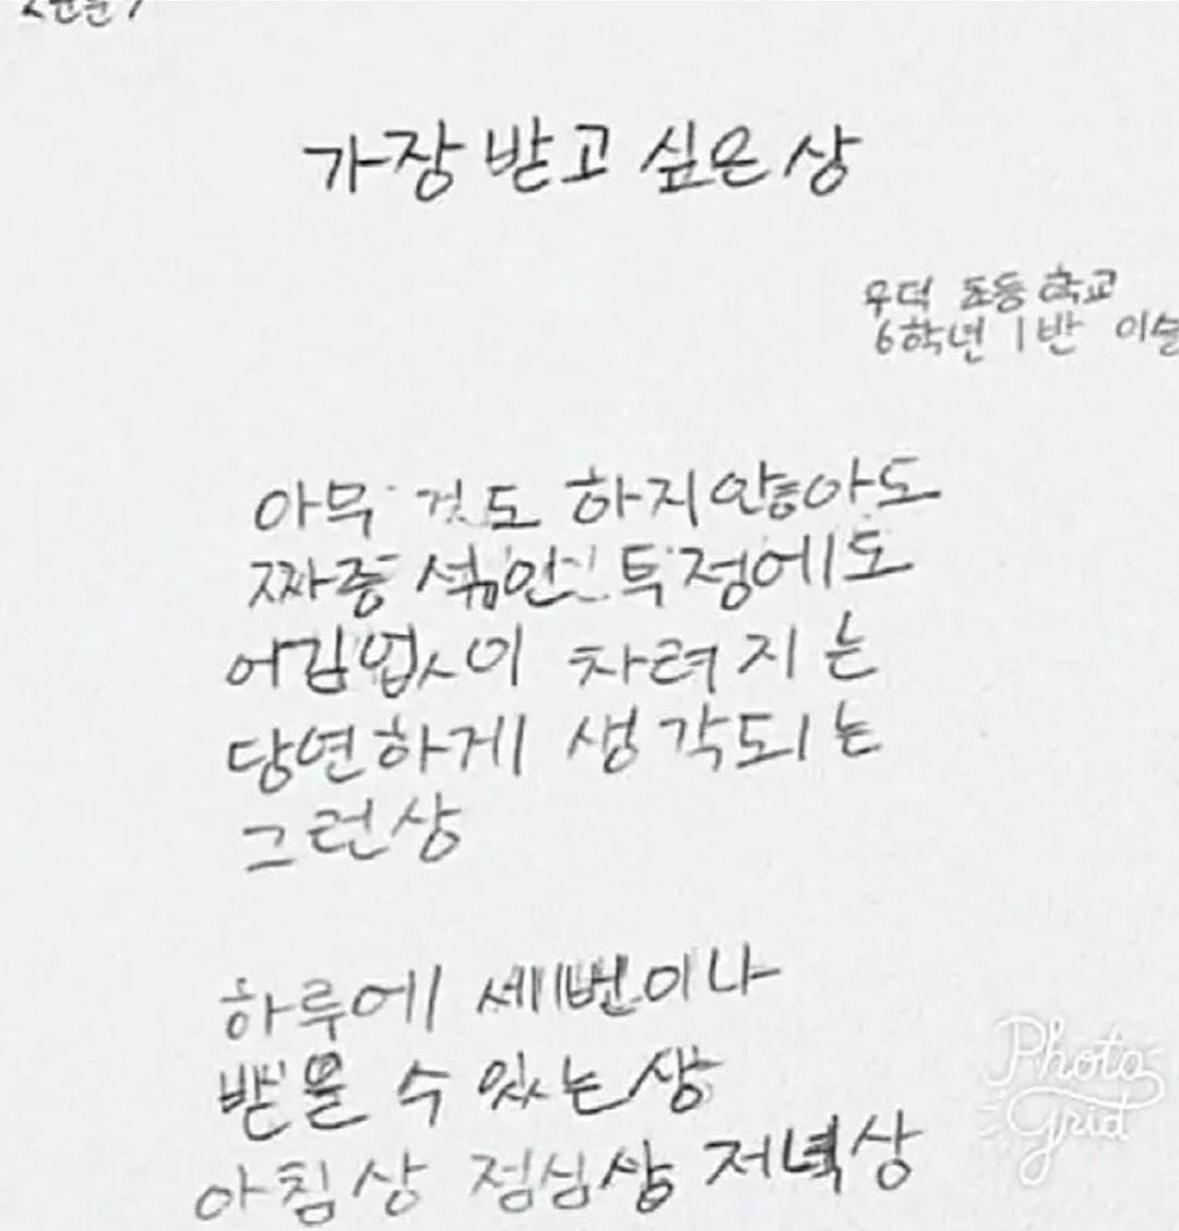 가장 받고 싶은 상
우덕 초등학교
6학년 1반
아무 것도 하지않아도
짜증 섞인 투정에도
어김없이 차려지는
당연하게 생각되는
그런상
하루에 세번이나
받을 수 있는 상
아침상 점심상 저녁상
Photo
Grid